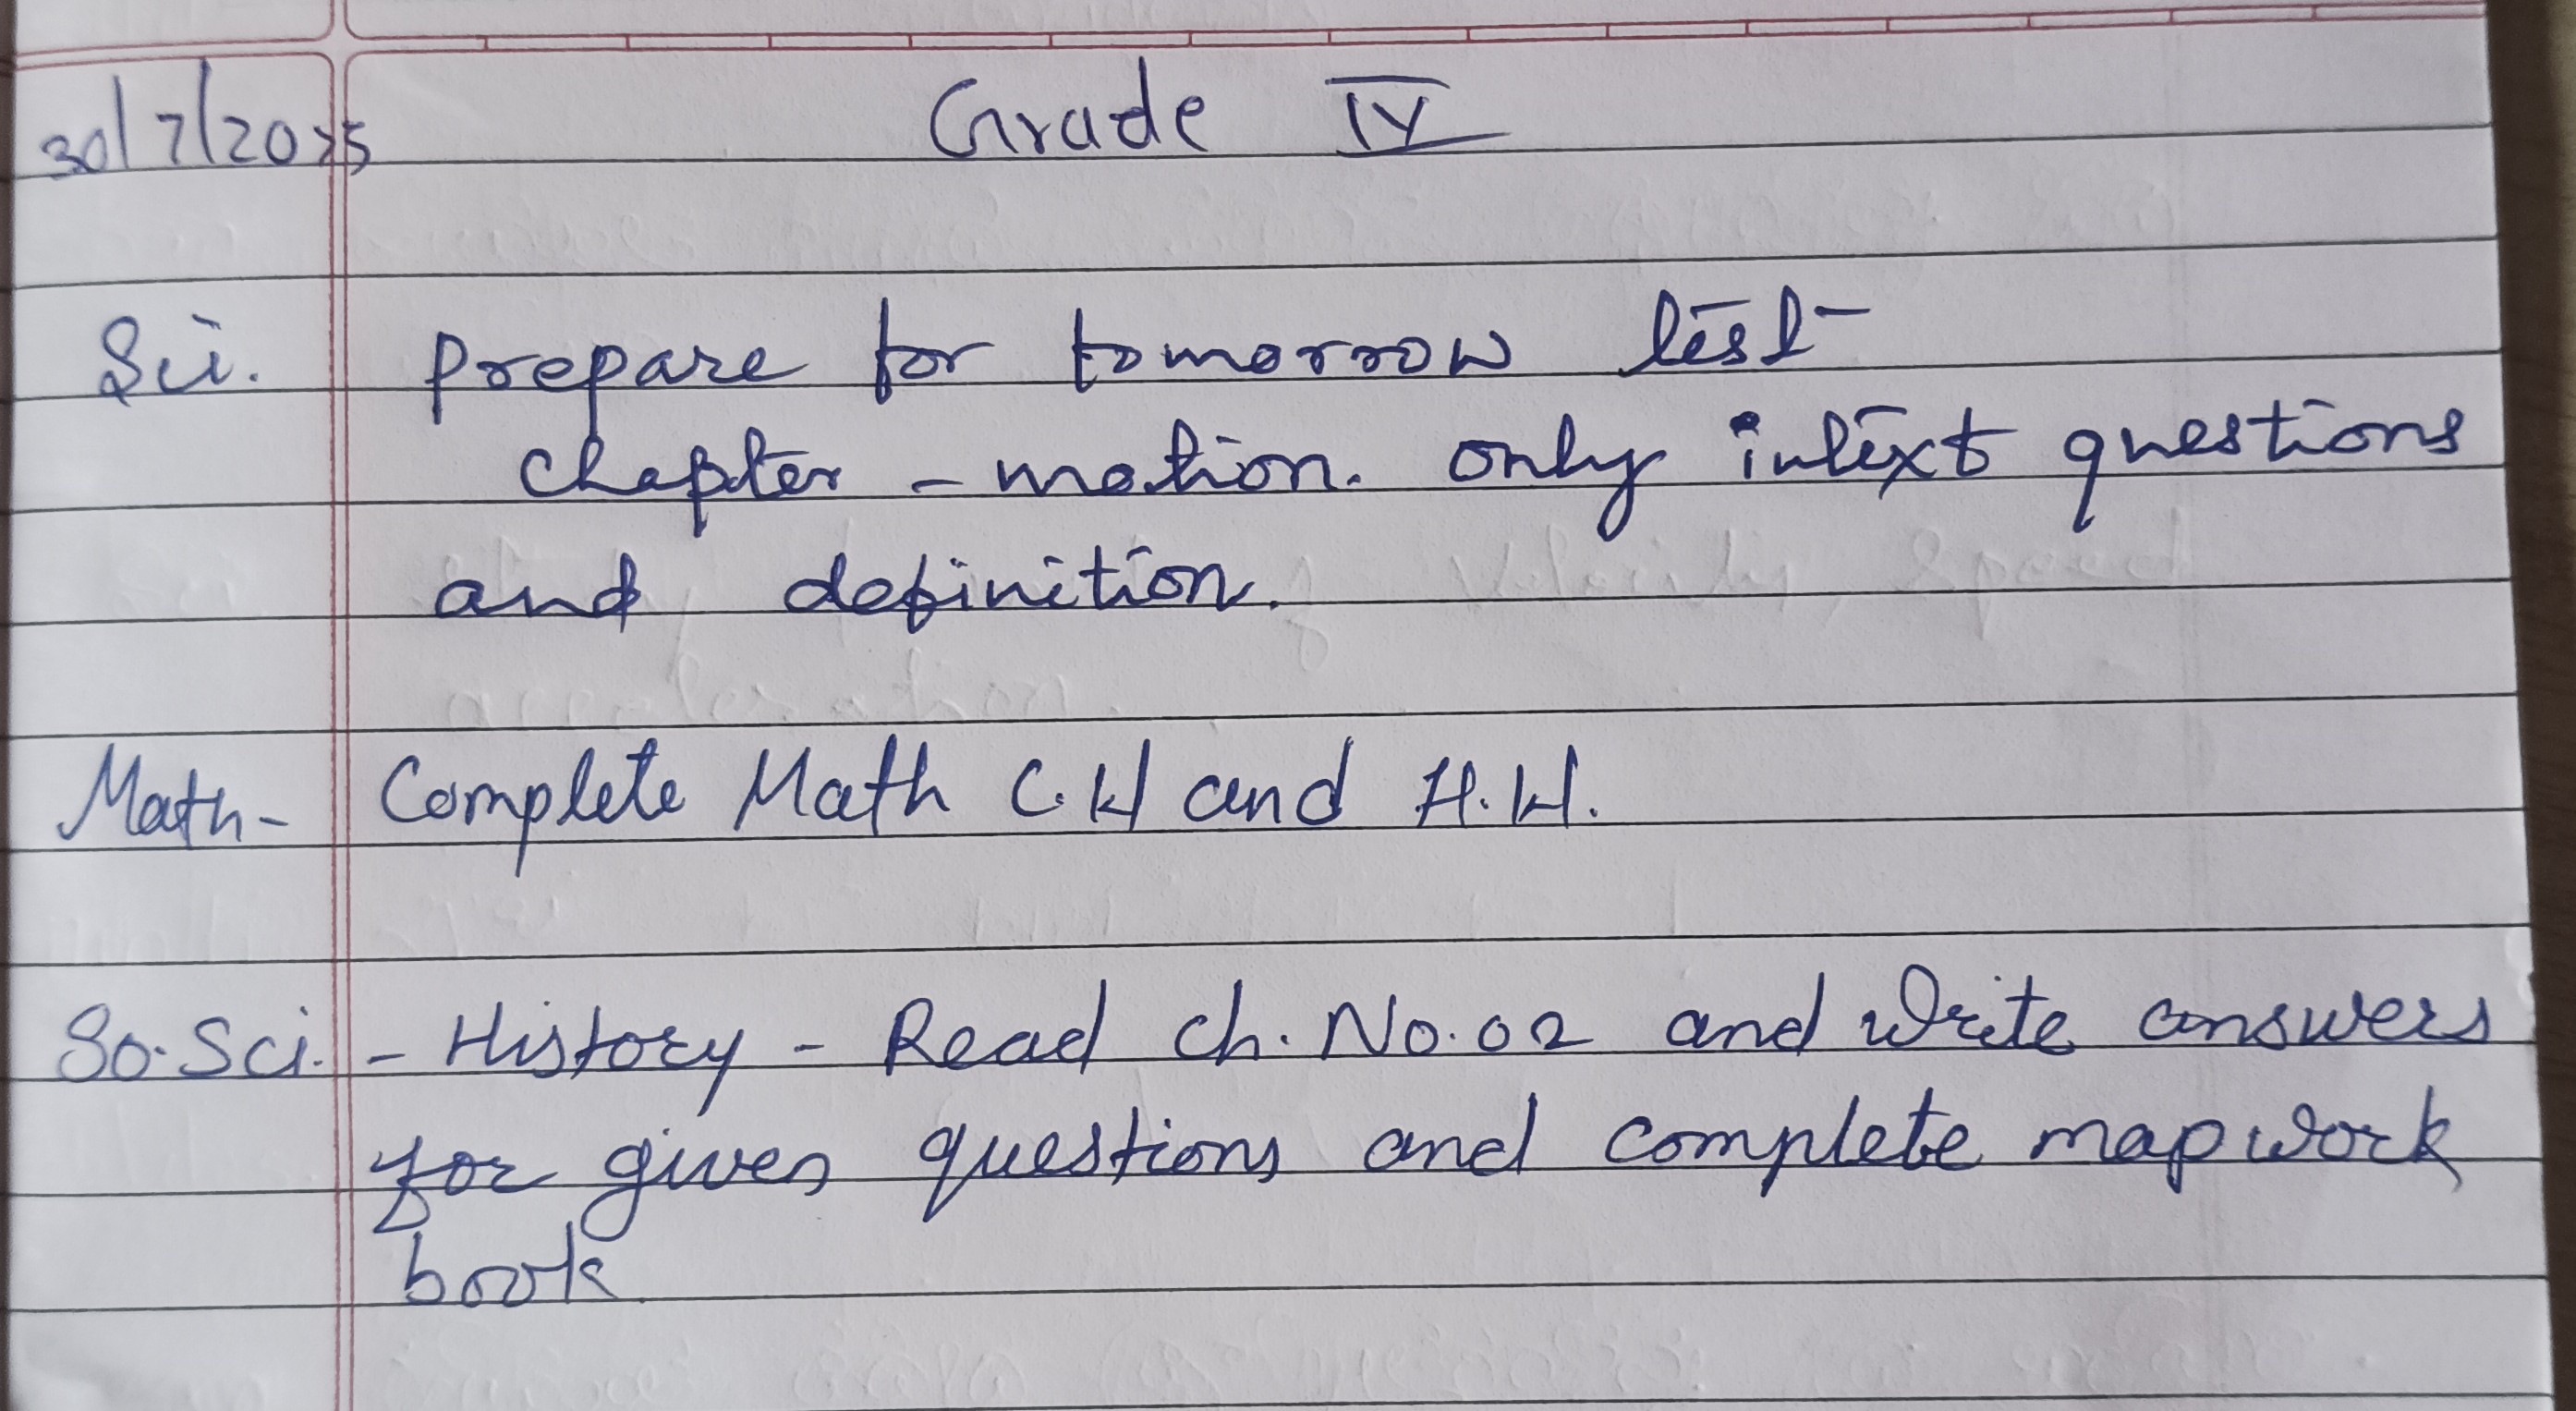 30/7/2025 Grade IV
Sci. prepare for tomorrow test
chapter - motion. only intext questions
and definition.
Math- Complete Math C.W and H.W.
So.Sci. - History - Read ch. No. 02 and write answers
for given questions and complete map work
book